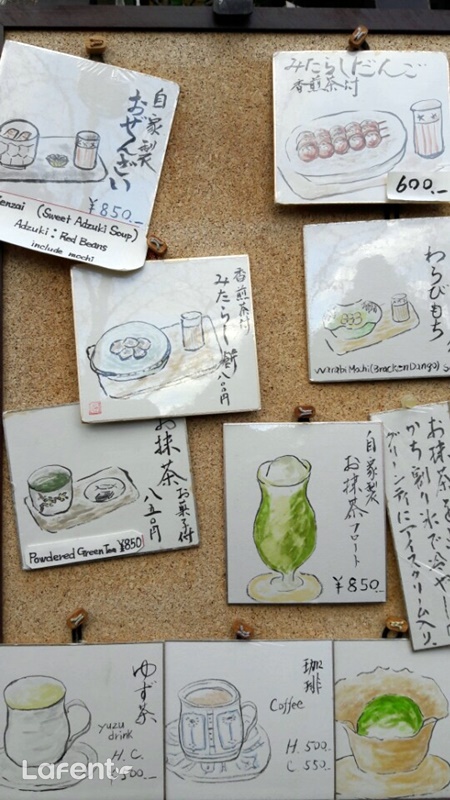 自家製
おぜんざい
¥850.-
enzai (Sweet Adzuki Soup)
Adzuki: Red Beans
include mochi
みたらしだんご
香煎茶付
600.-
香煎茶付
みたらし
八〇〇円
わらびもち
Warabi Mochi (Bracken Dango)
お抹茶
お菓子付
八五〇円
Powdered Green Tea ¥850
自家製
お抹茶フロート
¥850.-
かち割り氷で冷やし
グリーンティにアイスクリーム入り
ゆず茶
yuzu
drink
H. C.
500.-
珈琲
Coffee
H. 500.-
C 550.-
Lafent